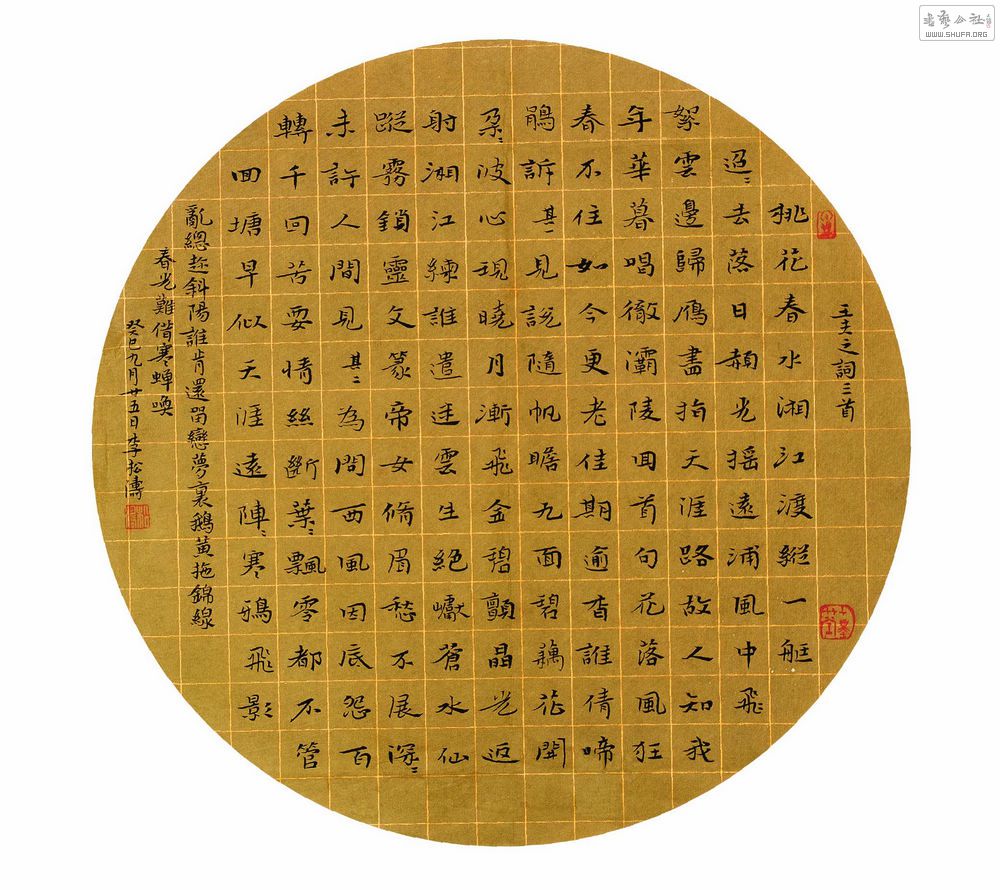 王夫之詞三首
桃花春水湘江渡縱一艇
迢〻去落日赬光搖遠浦風中飛
絮雲邊歸鴈盡指天涯路故人知我
年華暮唱徹灞陵回首句花落風狂
春不住如今更老佳期逾杳誰倩啼
鵑訴其一見説隨帆瞻九面碧藕花開
朶〻波心現曉月漸飛金碧顫晶光返
射湘江練誰遣迷雲生絕巘蒼水仙
蹤霧鎖靈文篆帝女脩眉愁不展深〻
未許人間見其二為問西風因底怨百
轉千回苦要情絲斷葉〻飄零都不管
回塘早似天涯遠陣〻寒鴉飛影
亂總趂斜陽誰肯還留戀夢裏鵝黃拖錦線
春光難借寒蟬喚
癸巳九月廿五日李松濤
WWW.SHUFA.ORG